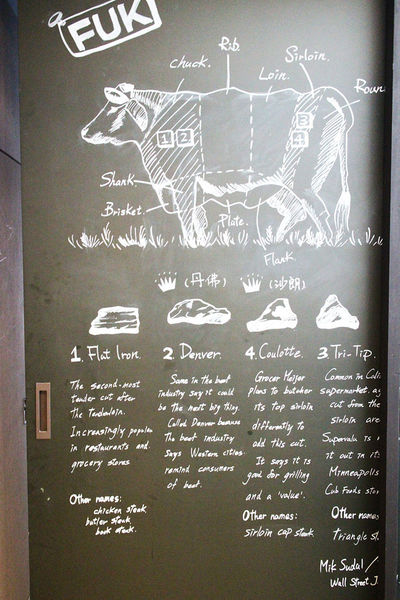 FUK
Rib.
Chuck.
Sirloin.
Loin.
Roun
3
1 2
4
Shank.
Brisket.
Plate.
Flank.
(丹佛)
(沙朗)
1. Flat Iron.
The second-most
tender cut after
the tenderloin.
Increasingly popular
in restaurants and
grocery stores
Other names:
chicken steak
butler steak
book steak.
2. Denver.
Some in the beef
industry say it could
be the next big thing.
Called Denver because
The beef industry
Says Western cities
remind consumers
of beef.
4. Coulotte.
Grocer Meijer
plans to butcher
its top sirloin
differently to
add this cut.
It says it is
good for grilling
and a 'value'.
Other names:
sirloin cap steak
3. Tri-Tip.
Common in Cali
supermarket, a
cut from the
sirloin are
Supervalu is
it out in it
Minneapolis
Cub Foods stor
Other name
Triangle st
Mik Sudal /
Wall Street J